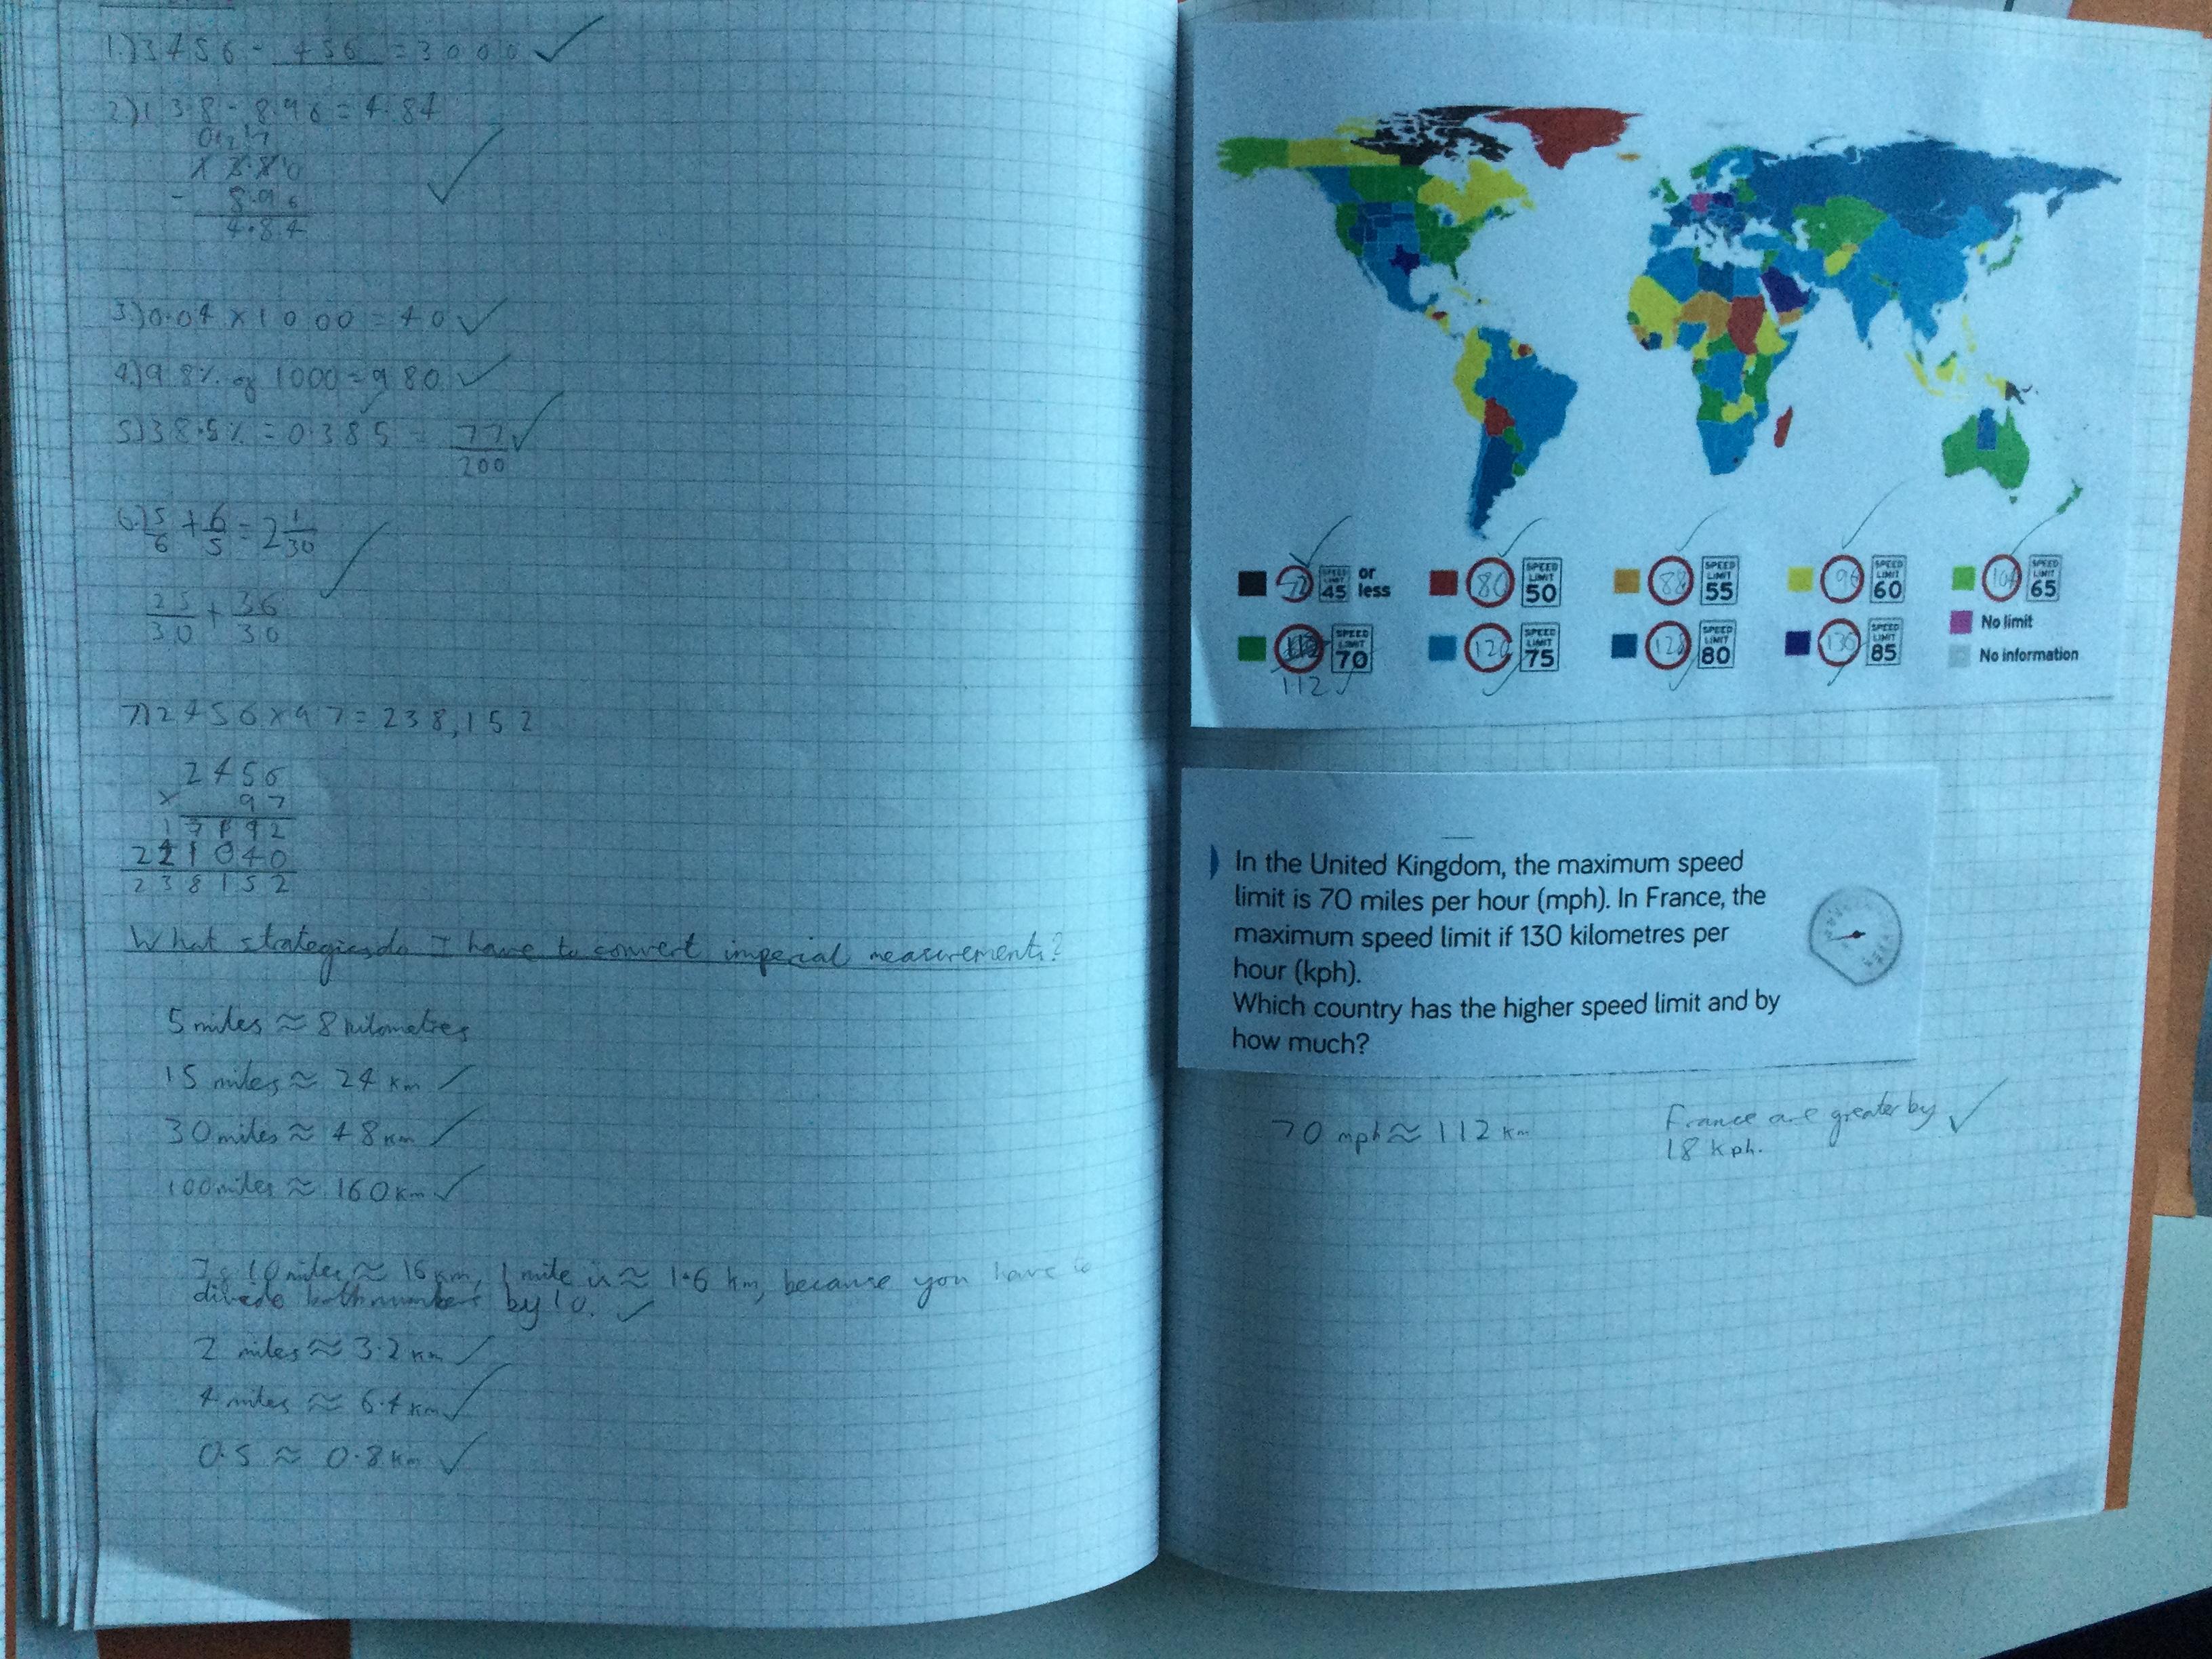 1.) 3456 - 456 = 3000 ✓
2) 13.8 - 8.96 = 4.84
0 12 17
1 3.8 10
- 8.96
4.84 ✓
3) 0.04 × 1000 = 40 ✓
4.) 98% of 1000 = 980 ✓
5) 38.5% = 0.385 = 77/200 ✓
6.) 5/6 + 6/5 = 2 1/30 ✓
25/30 + 36/30
7) 2456 × 97 = 238,152
2456
× 97
17192
221040
238152
What strategies do I have to convert imperial measurements?
5 miles ≈ 8 kilometres
15 miles ≈ 24 km ✓
30 miles ≈ 48 km ✓
100 miles ≈ 160 km ✓
10 miles ≈ 16 km, 1 mile is ≈ 1.6 km, because you have to
divide both numbers by 10. ✓
2 miles ≈ 3.2 km ✓
4 miles ≈ 6.4 km ✓
0.5 ≈ 0.8 km ✓
72 SPEED LIMIT 45 or less
80 SPEED LIMIT 50
88 SPEED LIMIT 55
96 SPEED LIMIT 60
104 SPEED LIMIT 65
SPEED LIMIT 70
112 ✓
120 SPEED LIMIT 75
128 SPEED LIMIT 80
136 SPEED LIMIT 85
No limit
No information
In the United Kingdom, the maximum speed
limit is 70 miles per hour (mph). In France, the
maximum speed limit if 130 kilometres per
hour (kph).
Which country has the higher speed limit and by
how much?
70 mph ≈ 112 km
France are greater by ✓
18 kph.